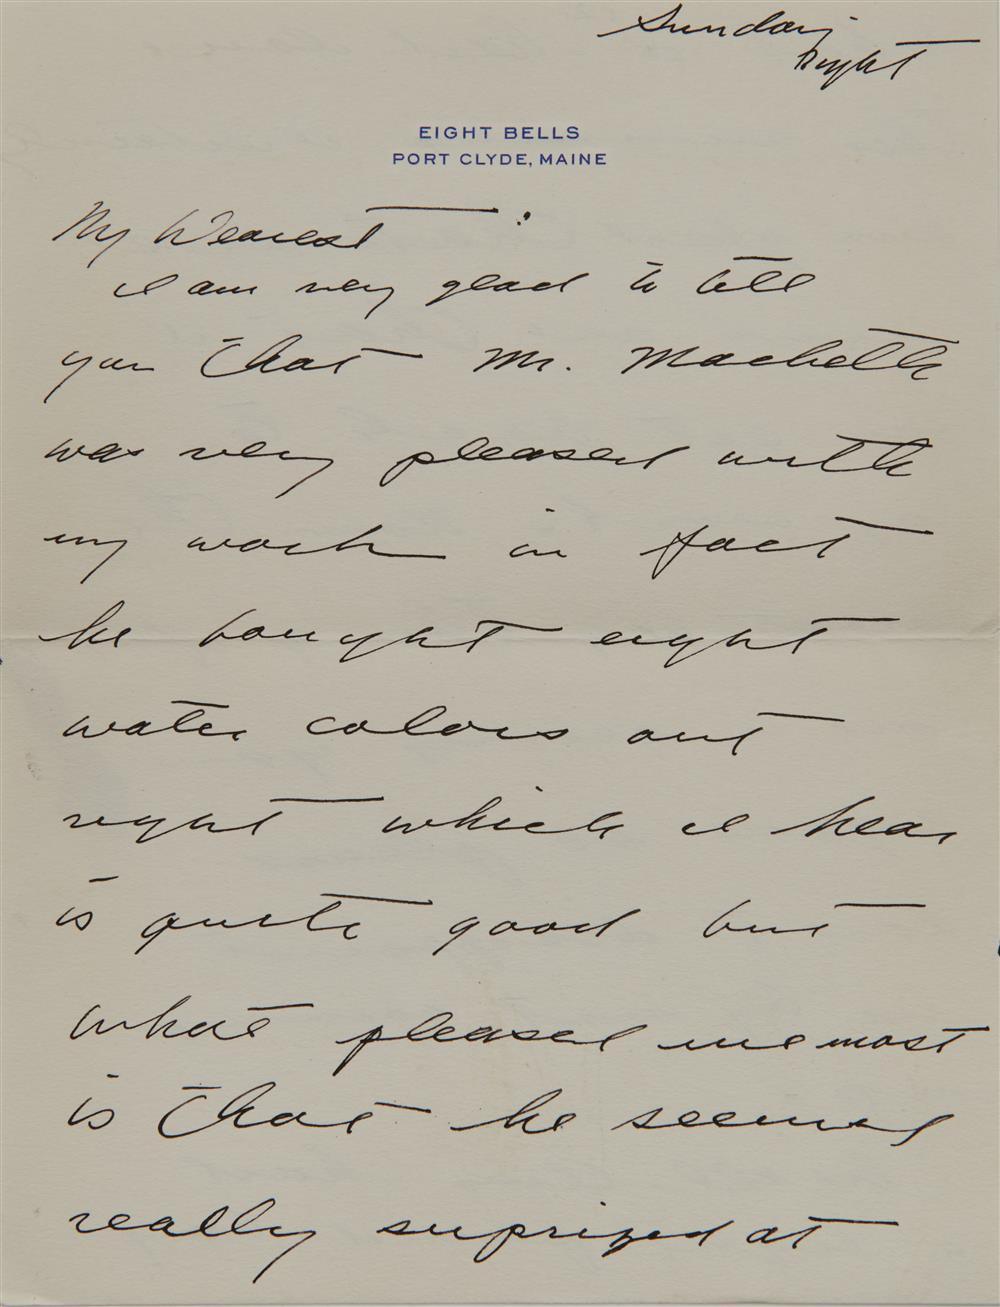 Sunday
night
EIGHT BELLS
PORT CLYDE, MAINE
My Dearest :
I am very glad to tell
you that Mr. Macbeth
was very pleased with
my work in fact
he bought eight
water colors out
right which I hear
is quite good but
what pleased me most
is that he seemed
really suprized at